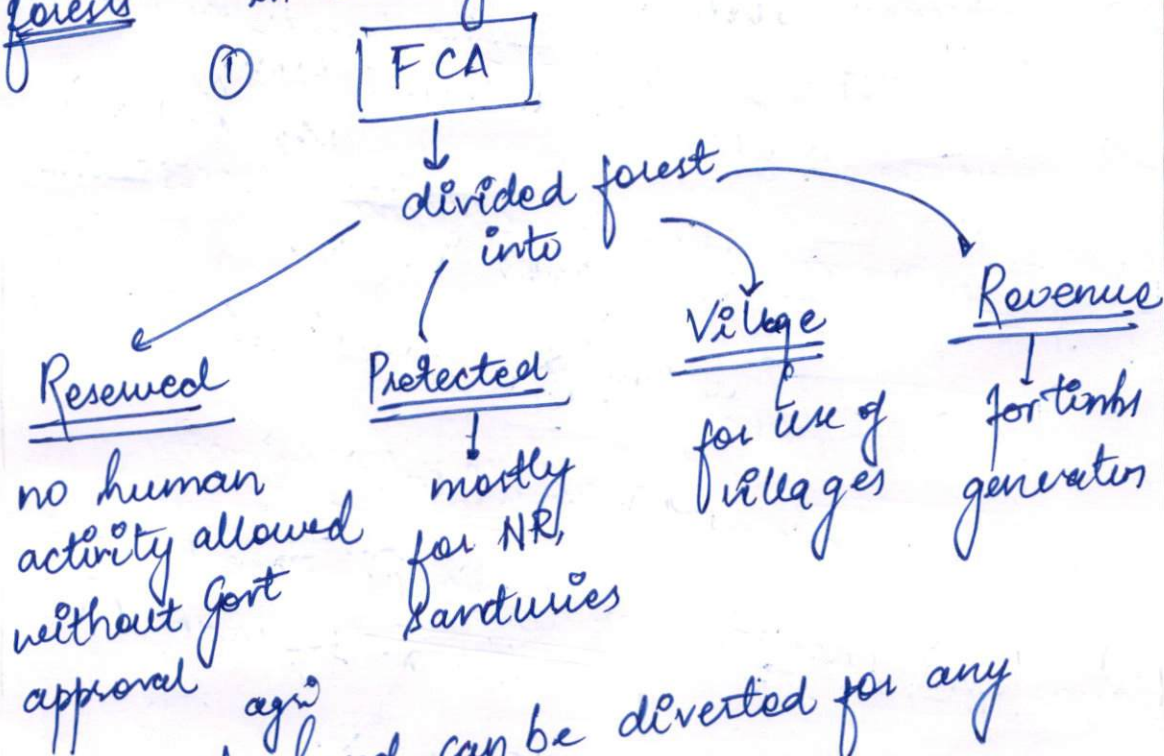 forests
① FCA
divided forest
into
Reserved
no human
activity allowed
without Govt
approval
Protected
mostly
for NR,
Sancturies
Village
for use of
villages
Revenue
for timbr
generation
agri
can be diverted for any